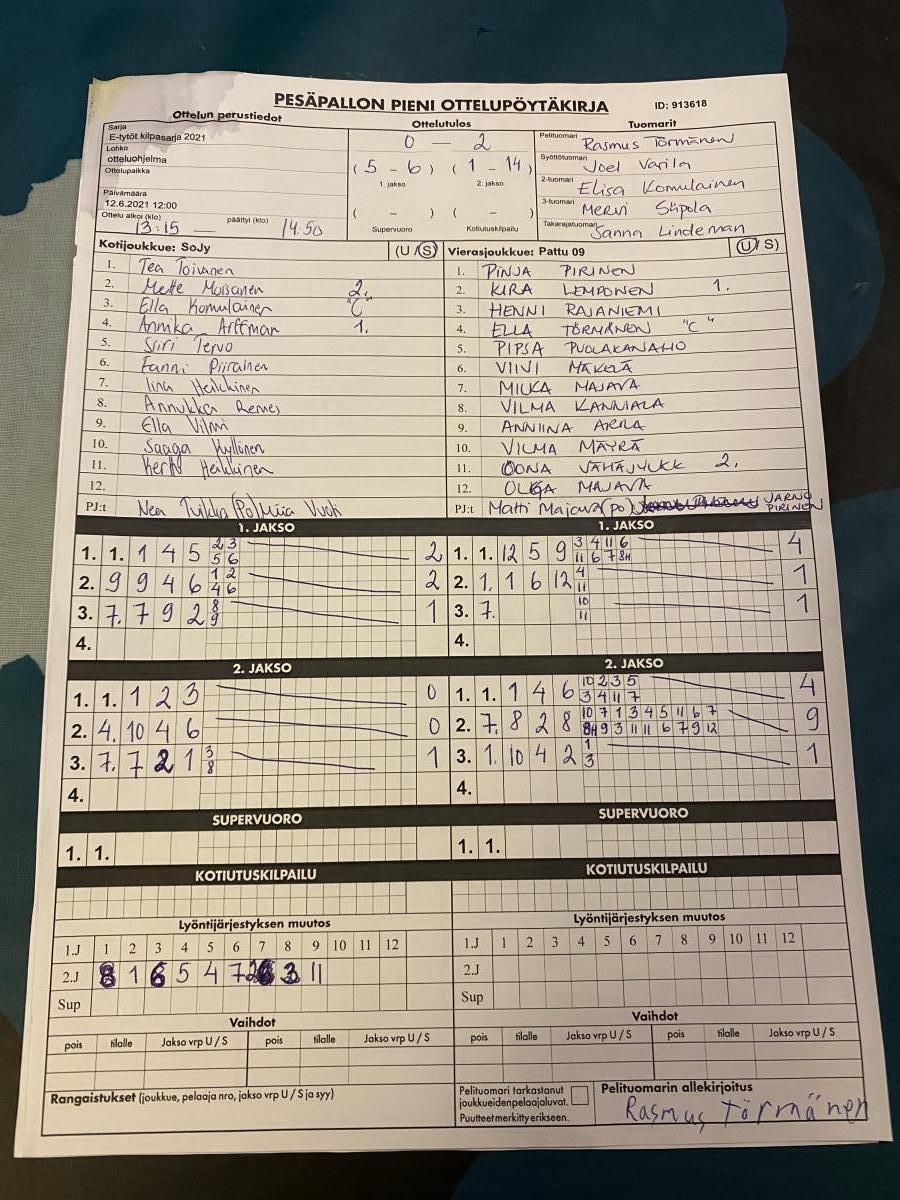 PESÄPALLON PIENI OTTELUPÖYTÄKIRJA
ID: 913618
Ottelun perustiedot
Ottelutulos
Tuomarit
Sarja
E-tytöt kilpasarja 2021
Lohko
otteluohjelma
Ottelupaikka
Päivämäärä
12.6.2021 12:00
Ottelu alkoi (klo) 13:15 päättyi (klo) 14.50
0 — 2
( 5 - 6 ) ( 1 - 14 )
1. jakso 2. jakso
( - ) ( - )
Supervuoro Kotiutuskilpailu
Pelituomari Rasmus Törmänen
Syöttötuomari Joel Varila
2-tuomari Elisa Komulainen
3-tuomari Mervi Siipola
Takarajatuomari Sanna Lindeman
Kotijoukkue: SoJy (U / S)
1. Tea Toivanen
2. Mette Moisanen 2.
3. Ella Komulainen "C"
4. Annika Arffman 1.
5. Siiri Tervo
6. Fanni Piirainen
7. Iina Heikkinen
8. Annukka Remes
9. Ella Vilmi
10. Saaga Kyllönen
11. Heikkinen
12.
PJ:t Nea (Po)
Vierasjoukkue: Pattu 09 (U / S)
1. PINJA PIRINEN
2. KIRA LEMPONEN 1.
3. HENNI RAJANIEMI
4. ELLA TÖRMÄNEN "C"
5. PIPSA PUOLAKANAHO
6. VIIVI MÄKELÄ
7. MILKA MAJAVA
8. VILMA KANNIALA
9. ANNIINA
10. VILMA MÄYRÄ
11. OONA 2.
12. OLGA MAJAVA
PJ:t Matti Majava (po) JARNO PIRINEN
1. JAKSO
1. 1. 1 4 5 2 3 5 6 2
2. 9 9 4 6 1 2 4 6 2
3. 7. 7 9 2 8 9 1
4.
1. JAKSO
1. 1. 12 5 9 3 4 11 6 11 6 7 8H 4
2. 1. 1 6 12 4 11 1
3. 7. 10 11 1
4.
2. JAKSO
1. 1. 1 2 3 0
2. 4. 10 4 6 0
3. 7. 7 2 1 3 8 1
4.
2. JAKSO
1. 1. 1 4 6 10 2 3 5 3 4 11 7 4
2. 7. 8 2 8 10 7 1 3 4 5 11 6 7 8H 9 3 11 11 6 7 9 12 9
3. 1. 10 4 2 1 3 1
4.
SUPERVUORO
1. 1.
SUPERVUORO
1. 1.
KOTIUTUSKILPAILU
KOTIUTUSKILPAILU
Lyöntijärjestyksen muutos
1.J 1 2 3 4 5 6 7 8 9 10 11 12
2.J 8 1 6 5 4 7 3 11
Sup
Lyöntijärjestyksen muutos
1.J 1 2 3 4 5 6 7 8 9 10 11 12
2.J
Sup
Vaihdot
pois tilalle Jakso vrp U / S pois tilalle Jakso vrp U / S
Vaihdot
pois tilalle Jakso vrp U / S pois tilalle Jakso vrp U / S
Rangaistukset (joukkue, pelaaja nro, jakso vrp U / S ja syy)
Pelituomari tarkastanut
joukkueidenpelaajaluvat.
Puutteet merkitty erikseen.
Pelituomarin allekirjoitus
Rasmus Törmänen